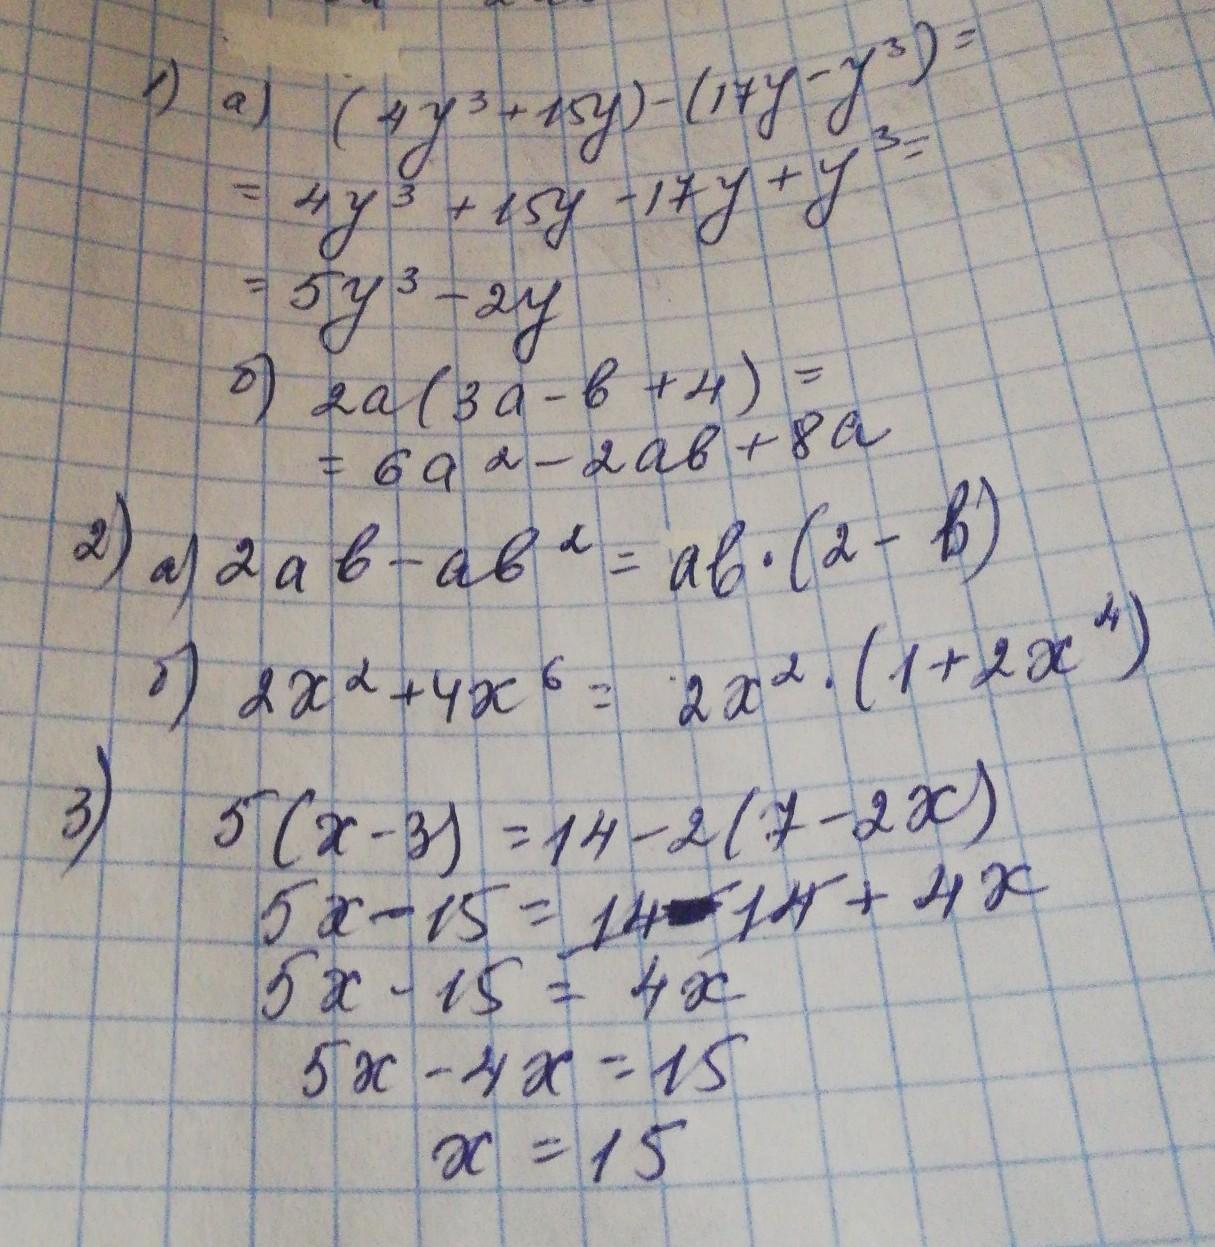 1) а) (4y³+15y)-(17y-y³)=
= 4y³+15y-17y+y³=
= 5y³-2y
б) 2a(3a-b+4)=
= 6a²-2ab+8a
2) а) 2ab-ab²= ab·(2-b)
б) 2x²+4x⁶= 2x²·(1+2x⁴)
3) 5(x-3)=14-2(7-2x)
5x-15=14-14+4x
5x-15=4x
5x-4x=15
x=15